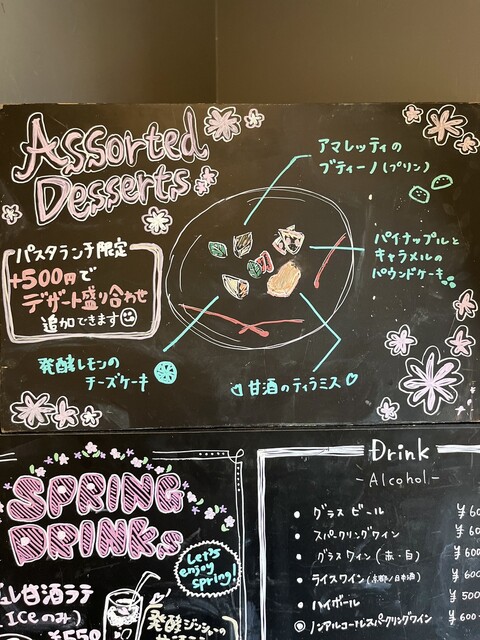 Assorted
Desserts
アマレッティの
ブティーノ(プリン)
パスタランチ限定
+500円で
デザート盛り合わせ
追加できます
パイナップルと
キャラメルの
パウンドケーキ
発酵レモンの
チーズケーキ
甘酒のティラミス
SPRING
DRINKs
Let's
enjoy
spring!
甘酒ラテ
Iceのみ)
¥550
発酵ジンジャーの
Drink
-Alcohol-
• グラスビール
• スパークリングワイン
• グラスワイン(赤・白) ¥600
• ライスワイン(京都/日本酒) ¥600
• ハイボール ¥500
◉ ノンアルコールスパークリングワイン ¥600